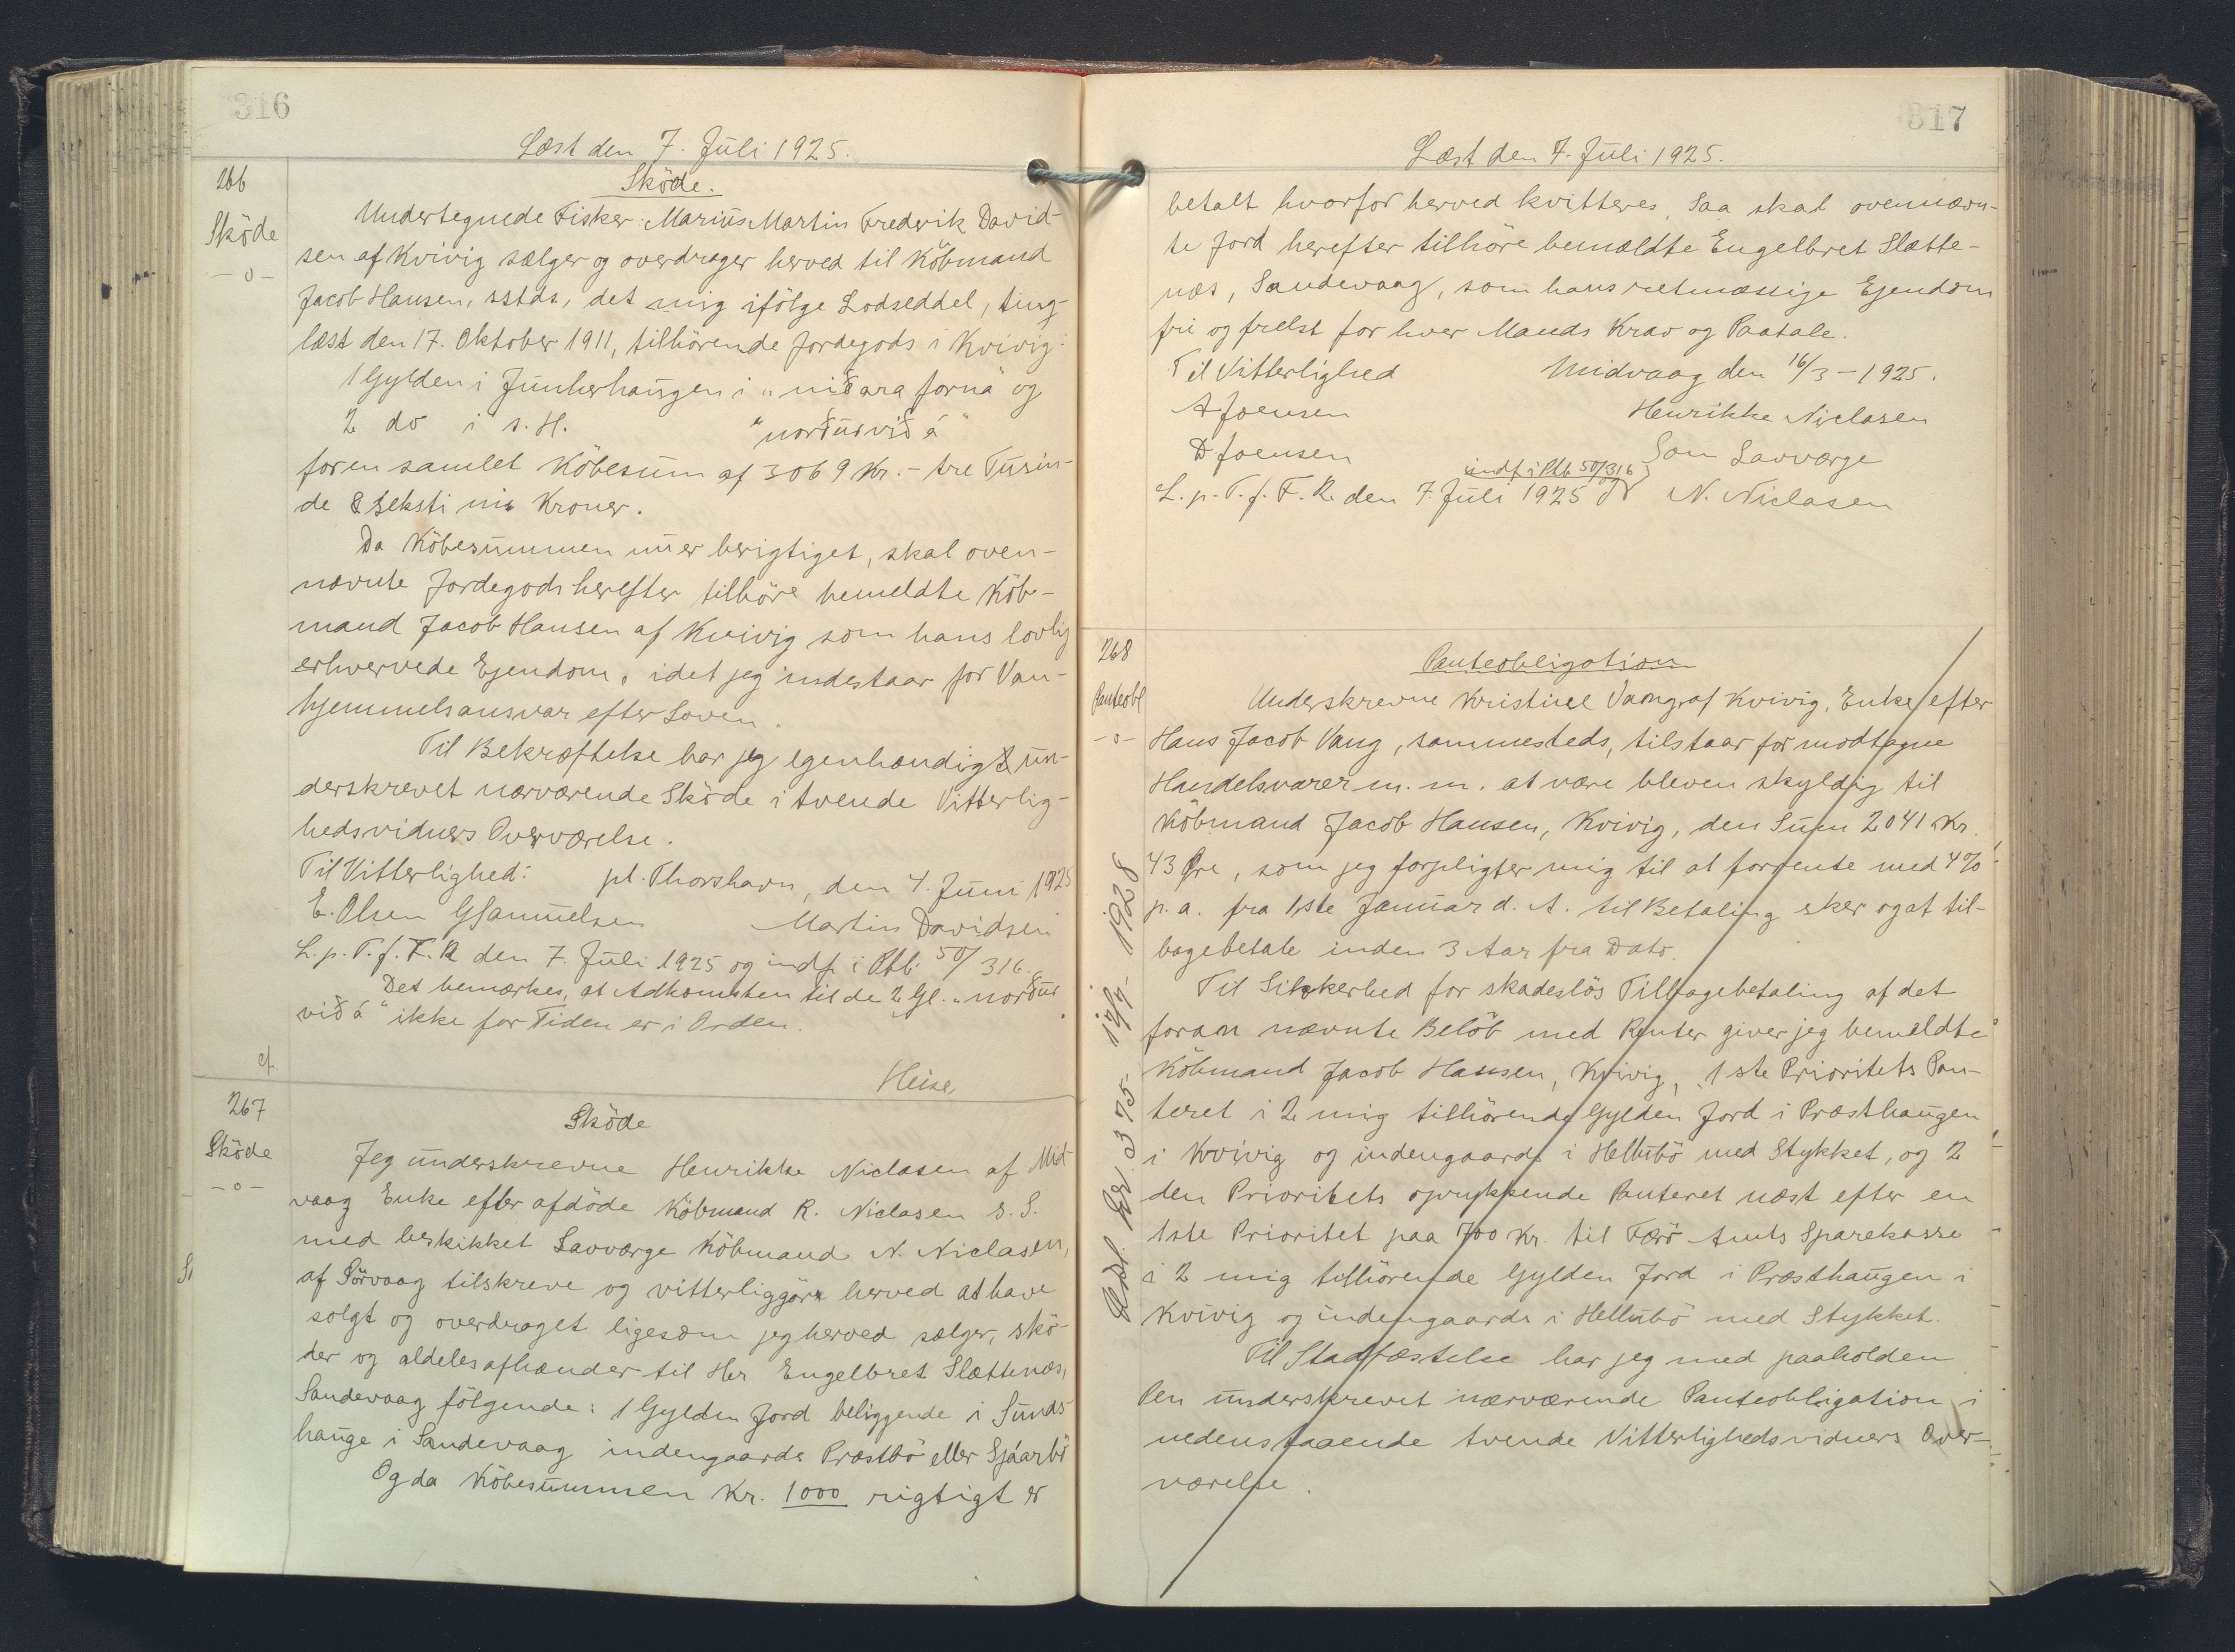 316
Læst den 7. Juli 1925.
266
Sköde
-o-
Sköde.
Undertegnede Fisker Marius Martin Fredrik David-
sen af Kvivig sælger og overdrager herved til Köbmand
Jacob Hansen, sstds, det mig ifölge Lodseddel, ting-
læst den 17. Oktober 1911, tilhörende Jordegods i Kvivig:
1 Gylden i Junkerhaugen i "niðara forna" og
2 do i s. H. "norður við á"
for en samlet Köbesum af 3069 Kr. - tre Tusin-
de & seksti ni Kroner.
Da Köbesummen nu er berigtiget, skal oven-
nævnte Jordegods herefter tilhöre bemeldte Köb-
mand Jacob Hansen af Kvivig som hans lovlig
erhvervede Ejendom, idet jeg indestaar for Van-
hjemmelsansvar efter Loven.
Til Bekræftelse har jeg egenhændigt un-
derskrevet nærværende Sköde i tvende Vitterlig-
hedsvidners Overværelse.
Til Vitterlighed: pt. Thorshavn, den 4. Juni 1925
E. Olsen GSamuelsen Martin Davidsen
L. p. T. f. F. R. den 7. Juli 1925 og indf. i Ptb. 50/316.
Det bemærkes, at Adkomsten til de 2 Gl. "norður
við á" ikke for Tiden er i Orden.
Heise,
cf.
267
Sköde
-o-
Sköde
Jeg underskrevne Henrikke Niclasen af Mid-
vaag Enke efter afdöde Köbmand R. Niclasen s. S.
med beskikket Lavværge Köbmand N. Niclasen,
af Sörvaag tilskreve og vitterliggöre herved at have
solgt og overdraget ligesom jeg herved sælger, skö-
der og aldeles afhænder til Her Engelbret Slættenæs,
Sandevaag fölgende: 1 Gylden Jord beliggende i Sunds-
hauge i Sandevaag indengaards Præstbö eller Sjáarbö
Og da Köbesummen Kr. 1000 rigtigt er
317
Læst den 7. Juli 1925.
betalt hvorfor herved kvitteres, Saa skal ovennævn-
te Jord herefter tilhöre bemældte Engelbret Slætte-
næs, Sandevaag, som hans retmæssige Ejendom
fri og frelst for hver Mands Krav og Paatale.
Til Vitterlighed Midvaag den 16/3-1925.
A Joensen Henrikke Niclasen
D Joensen Som Lavværge
indf. i Ptb. 50/316
L. p. T. f. F. R. den 7. Juli 1925 N. Niclasen
268
Panteobl
-o-
Panteobligation
Underskrevne Kristine Vang af Kvivig, Enke efter
Hans Jacob Vang, sammesteds, tilstaar for modtagne
Handelsvarer m. m. at være bleven skyldig til
Köbmand Jacob Hansen, Kvivig, den Sum 2041 Kr.
43 Øre, som jeg forpligter mig til at forrente med 4%
p. a. fra 1ste Januar d. A. til Betaling sker og at til-
bagebetale inden 3 Aar fra Dato.
Til Sikkerhed for skadeslös Tilbagebetaling af det
foran nævnte Belöb med Renter giver jeg bemeldte
Köbmand Jacob Hansen, Kvivig, 1ste Prioritets Pan-
teret i 2 mig tilhörende Gylden Jord i Præsthaugen
i Kvivig og indengaards i Hellubö med Stykket, og 2
den Prioritets oprykkende Panteret næst efter en
1ste Prioritet paa 700 Kr. til Færö Amts Sparekasse
i 2 mig tilhörende Gylden Jord i Præsthaugen i
Kvivig og indengaards i Hellubö med Stykket.
Til Stadfæstelse har jeg med paaholden
Pen underskrevet nærværende Panteobligation i
nedenstaaende tvende Vitterlighedsvidners Over-
værelse.
1928